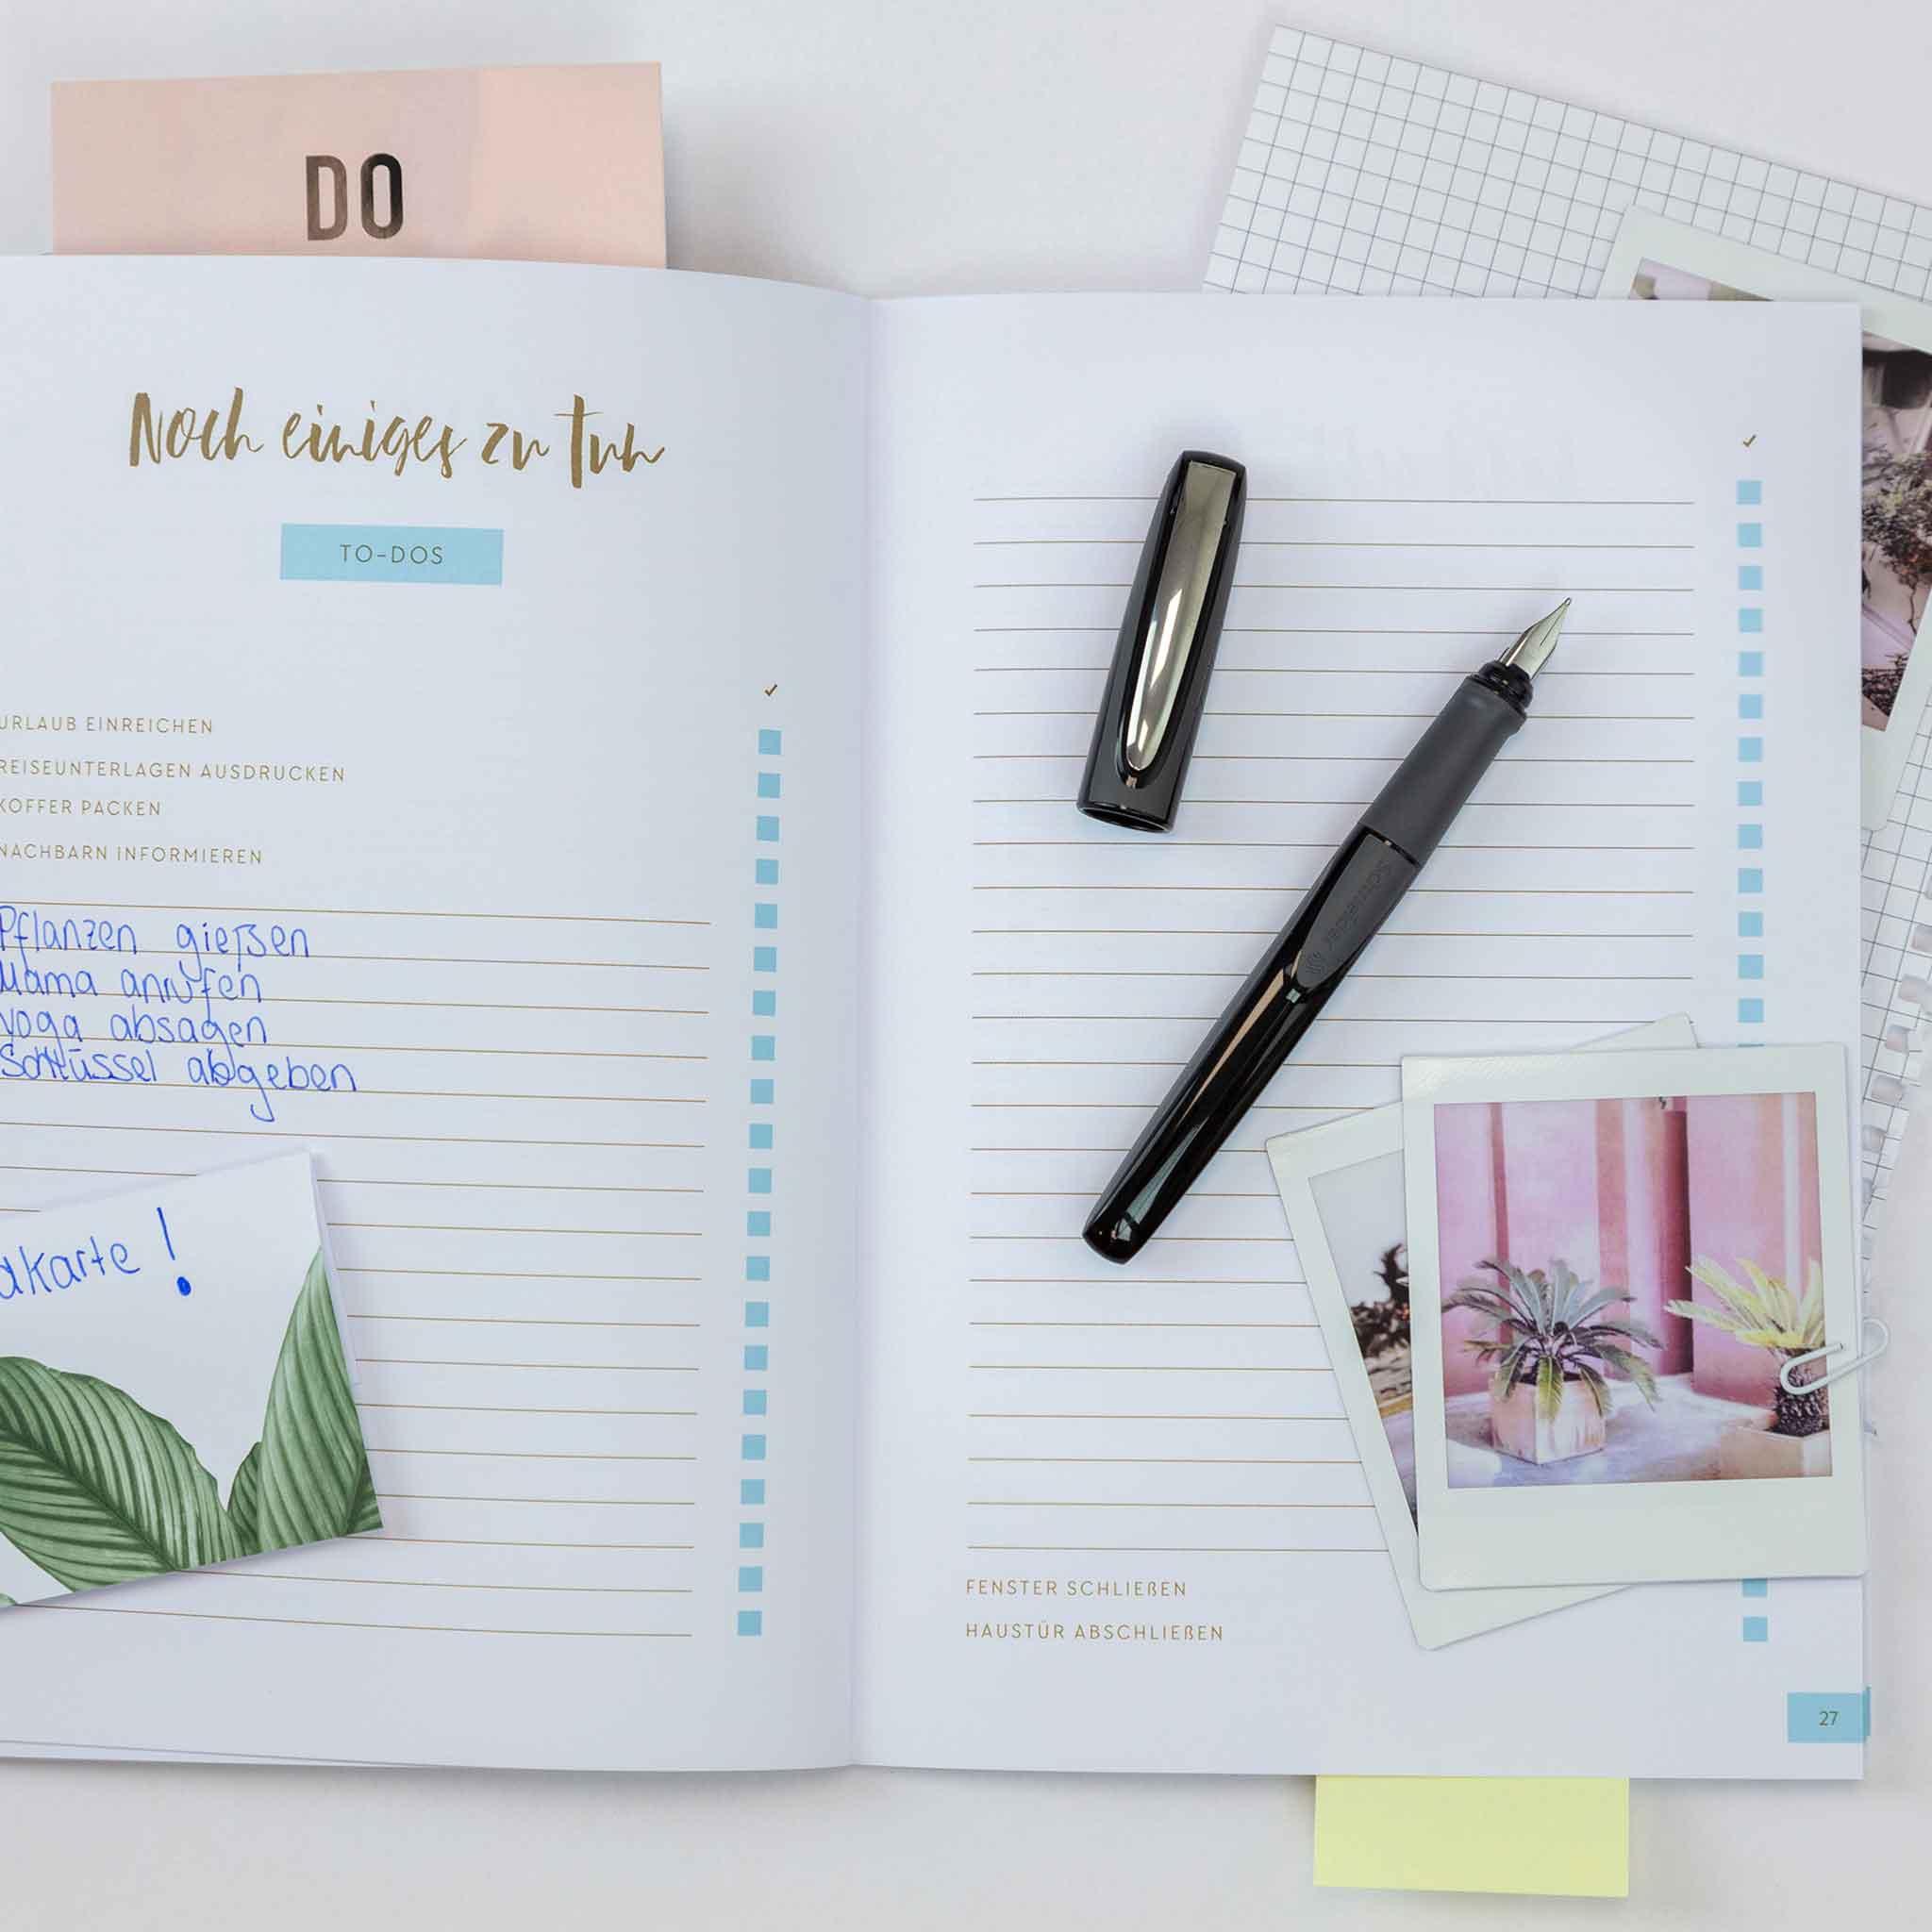 DO
Noch einiges zu tun
TO-DOS
✓
URLAUB EINREICHEN
REISEUNTERLAGEN AUSDRUCKEN
KOFFER PACKEN
NACHBARN INFORMIEREN
Pflanzen gießen
Mama anrufen
Yoga absagen
Schlüssel abgeben
akarte!
✓
Schneider
FENSTER SCHLIEßEN
HAUSTÜR ABSCHLIEßEN
27